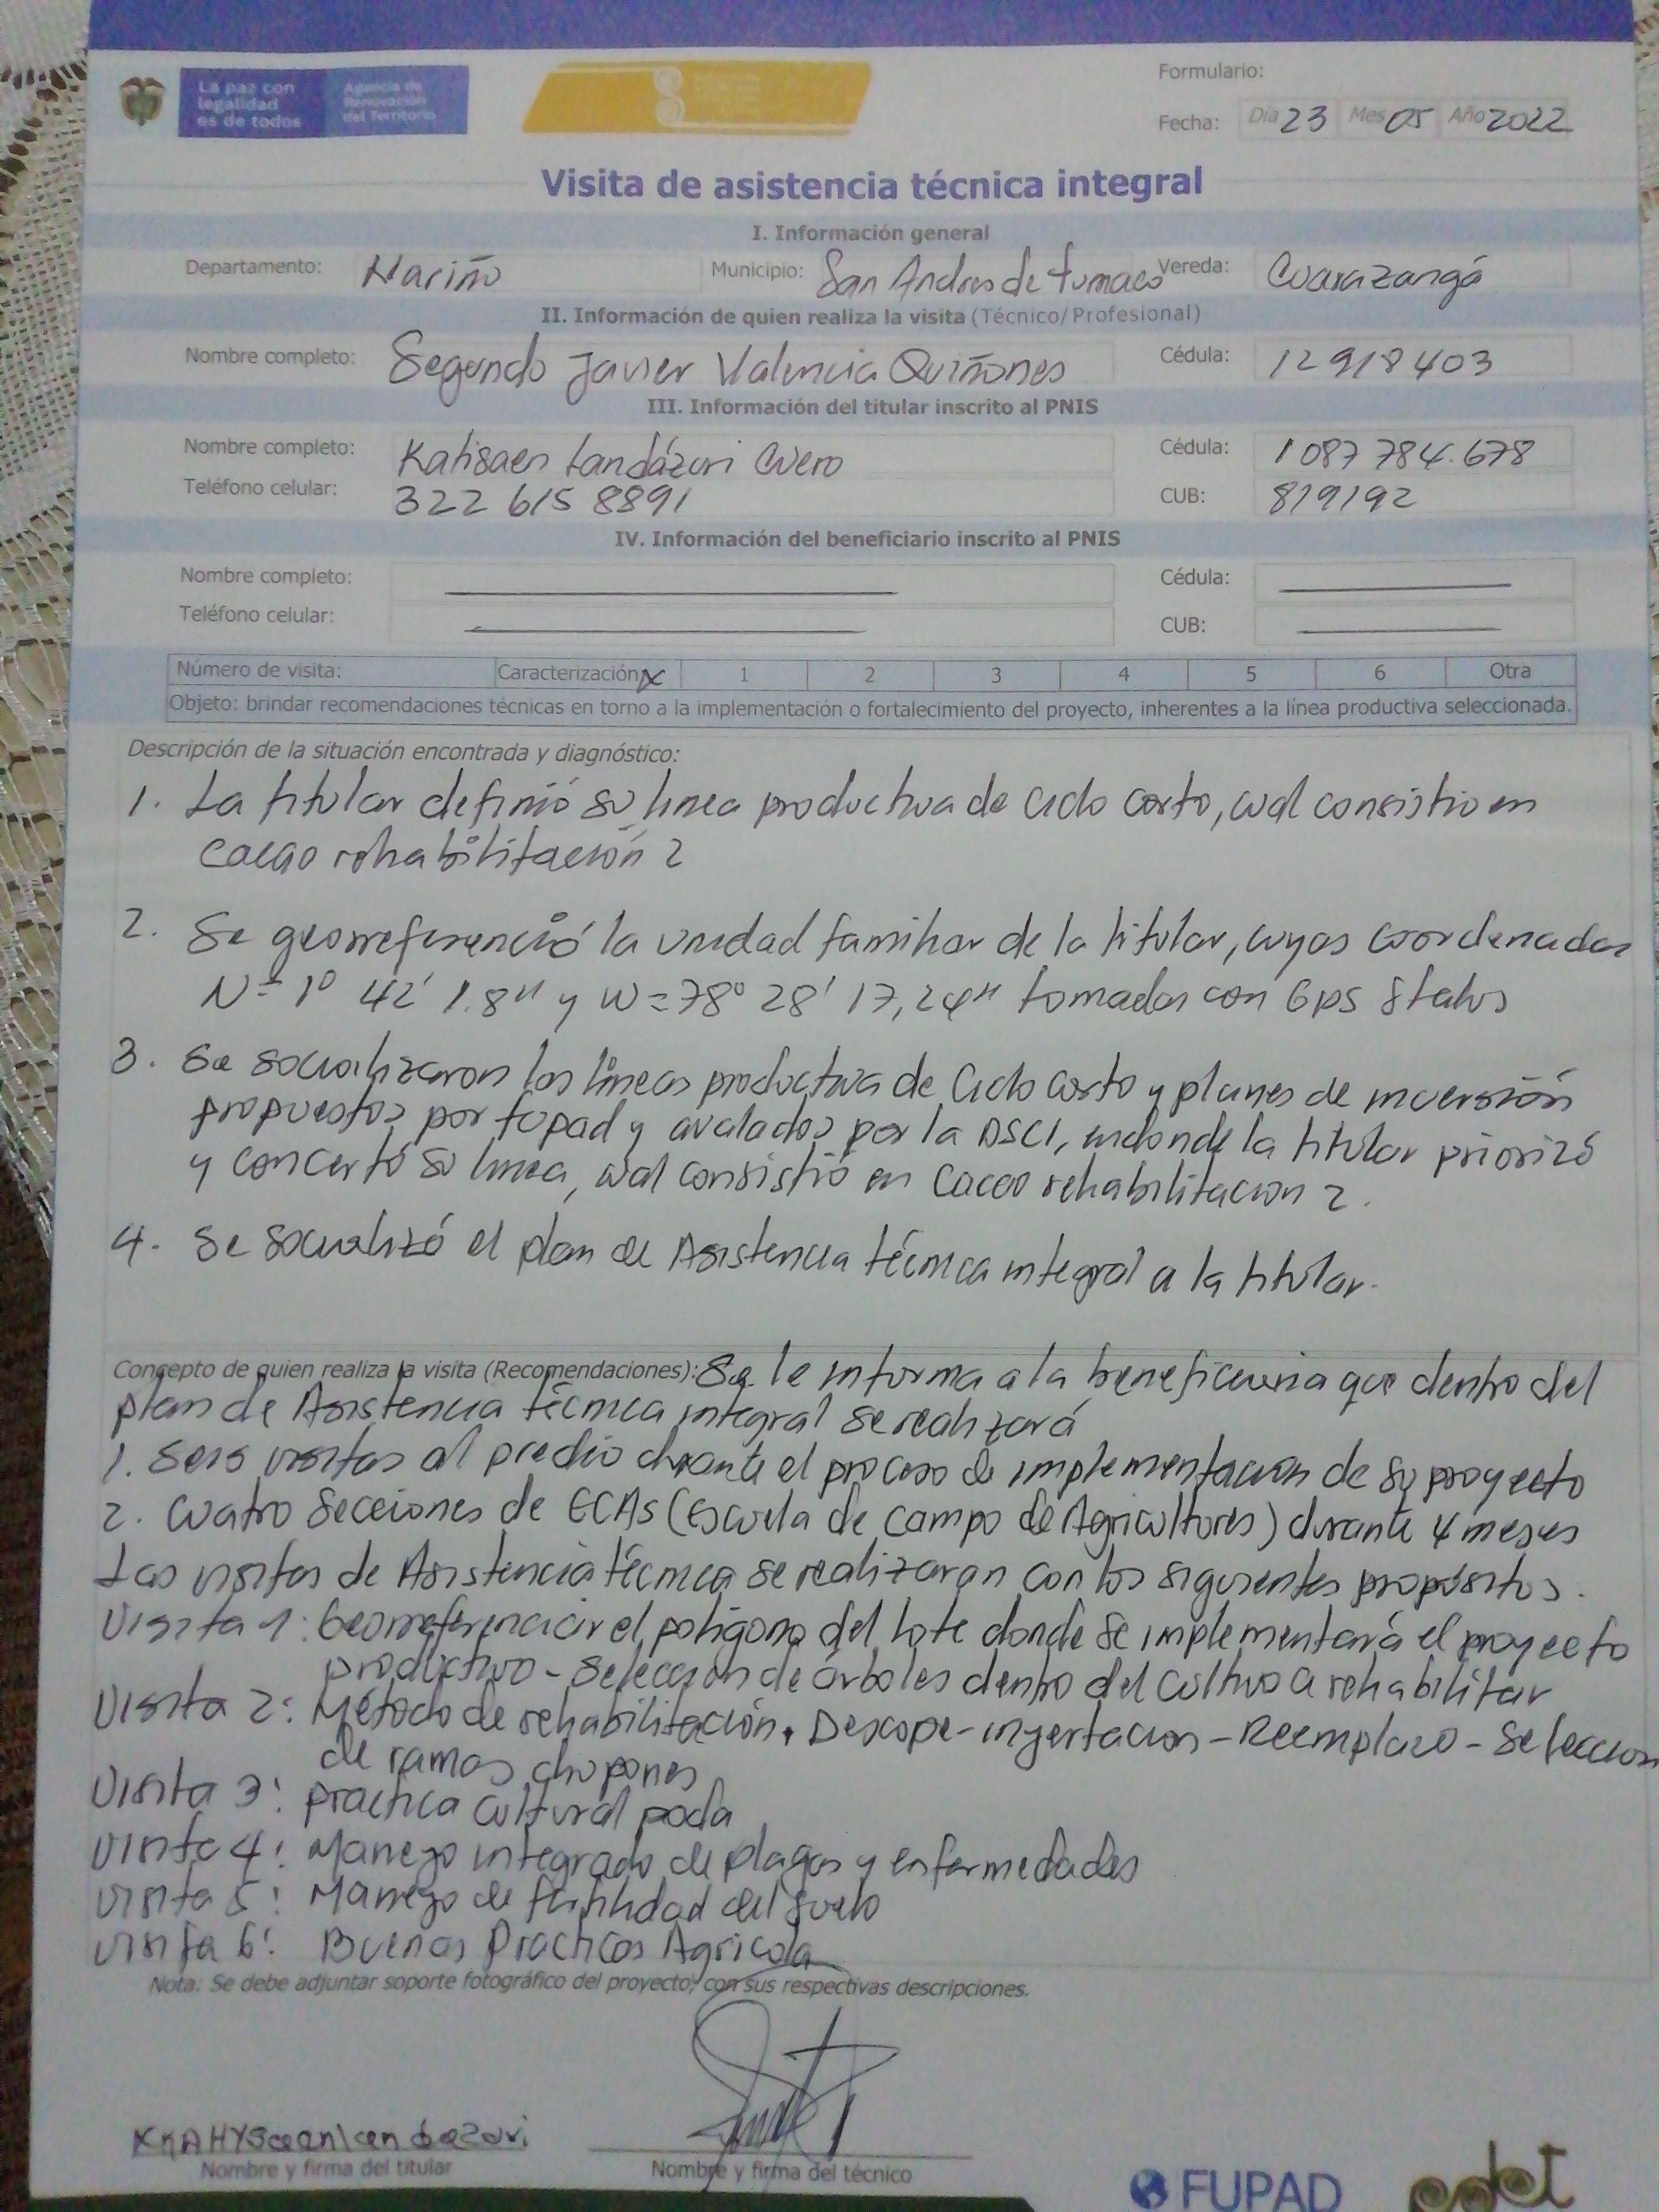 La paz con
legalidad
es de todos
Agencia de
Renovación
del Territorio
Formulario:
Fecha: Día 23 Mes 05 Año 2022
Visita de asistencia técnica integral
I. Información general
Departamento: Nariño Municipio: San Andres de tumaco Vereda: Cuarazangá
II. Información de quien realiza la visita (Técnico/Profesional)
Nombre completo: Segundo Javier Valencia Quiñones Cédula: 12918403
III. Información del titular inscrito al PNIS
Nombre completo: Katisaen Landázuri Cuero Cédula: 1087784.678
Teléfono celular: 322 615 8891 CUB: 819192
IV. Información del beneficiario inscrito al PNIS
Nombre completo: Cédula:
Teléfono celular: CUB:
Número de visita: Caracterización X 1 2 3 4 5 6 Otra
Objeto: brindar recomendaciones técnicas en torno a la implementación o fortalecimiento del proyecto, inherentes a la línea productiva seleccionada.
Descripción de la situación encontrada y diagnóstico:
1. La titular definió su linea productiva de Ciclo Corto, cual consistio en
cacao rehabilitación 2
2. Se georreferenció la unidad familiar de la titular, cuyas coordenadas
N= 1° 42' 1.8" y W=78° 28' 17,24" tomadas con Gps Status
3. Se socializaron las líneas productiva de Ciclo Corto y planes de inversión
propuestos por fupad y avalados por la DSCI, endonde la titular priorizó
y concertó su linea, cual consistió en Cacao rehabilitacion 2.
4. Se socializó el plan de Asistencia técnica integral a la titular.
Concepto de quien realiza la visita (Recomendaciones): Se le informa a la beneficiaria que dentro del
plan de Asistencia técnica integral se realizará
1. Seis visitas al predio durante el proceso de implementacion de su proyecto
2. Cuatro Secciones de ECAs (Escuela de Campo de Agricultores) durante 4 meses
Las visitas de Asistencia técnica se realizaran con los siguientes propósitos.
Visita 1: Georreferenciar el polígono del lote donde se implementará el proyecto
productivo - Seleccion de árboles dentro del Cultivo a rehabilitar
Visita 2: Método de rehabilitación. Descope - injertacion - Reemplazo - Seleccion
de ramas chupones
Visita 3: practica cultural poda
Visita 4: Manejo integrado de plagas y enfermedades
Visita 5: Manejo de fertilidad del suelo
Visita 6: Buenas Practicas Agricola
Nota: Se debe adjuntar soporte fotográfico del proyecto, con sus respectivas descripciones.
Nombre y firma del titular
Nombre y firma del técnico
FUPAD
pdet